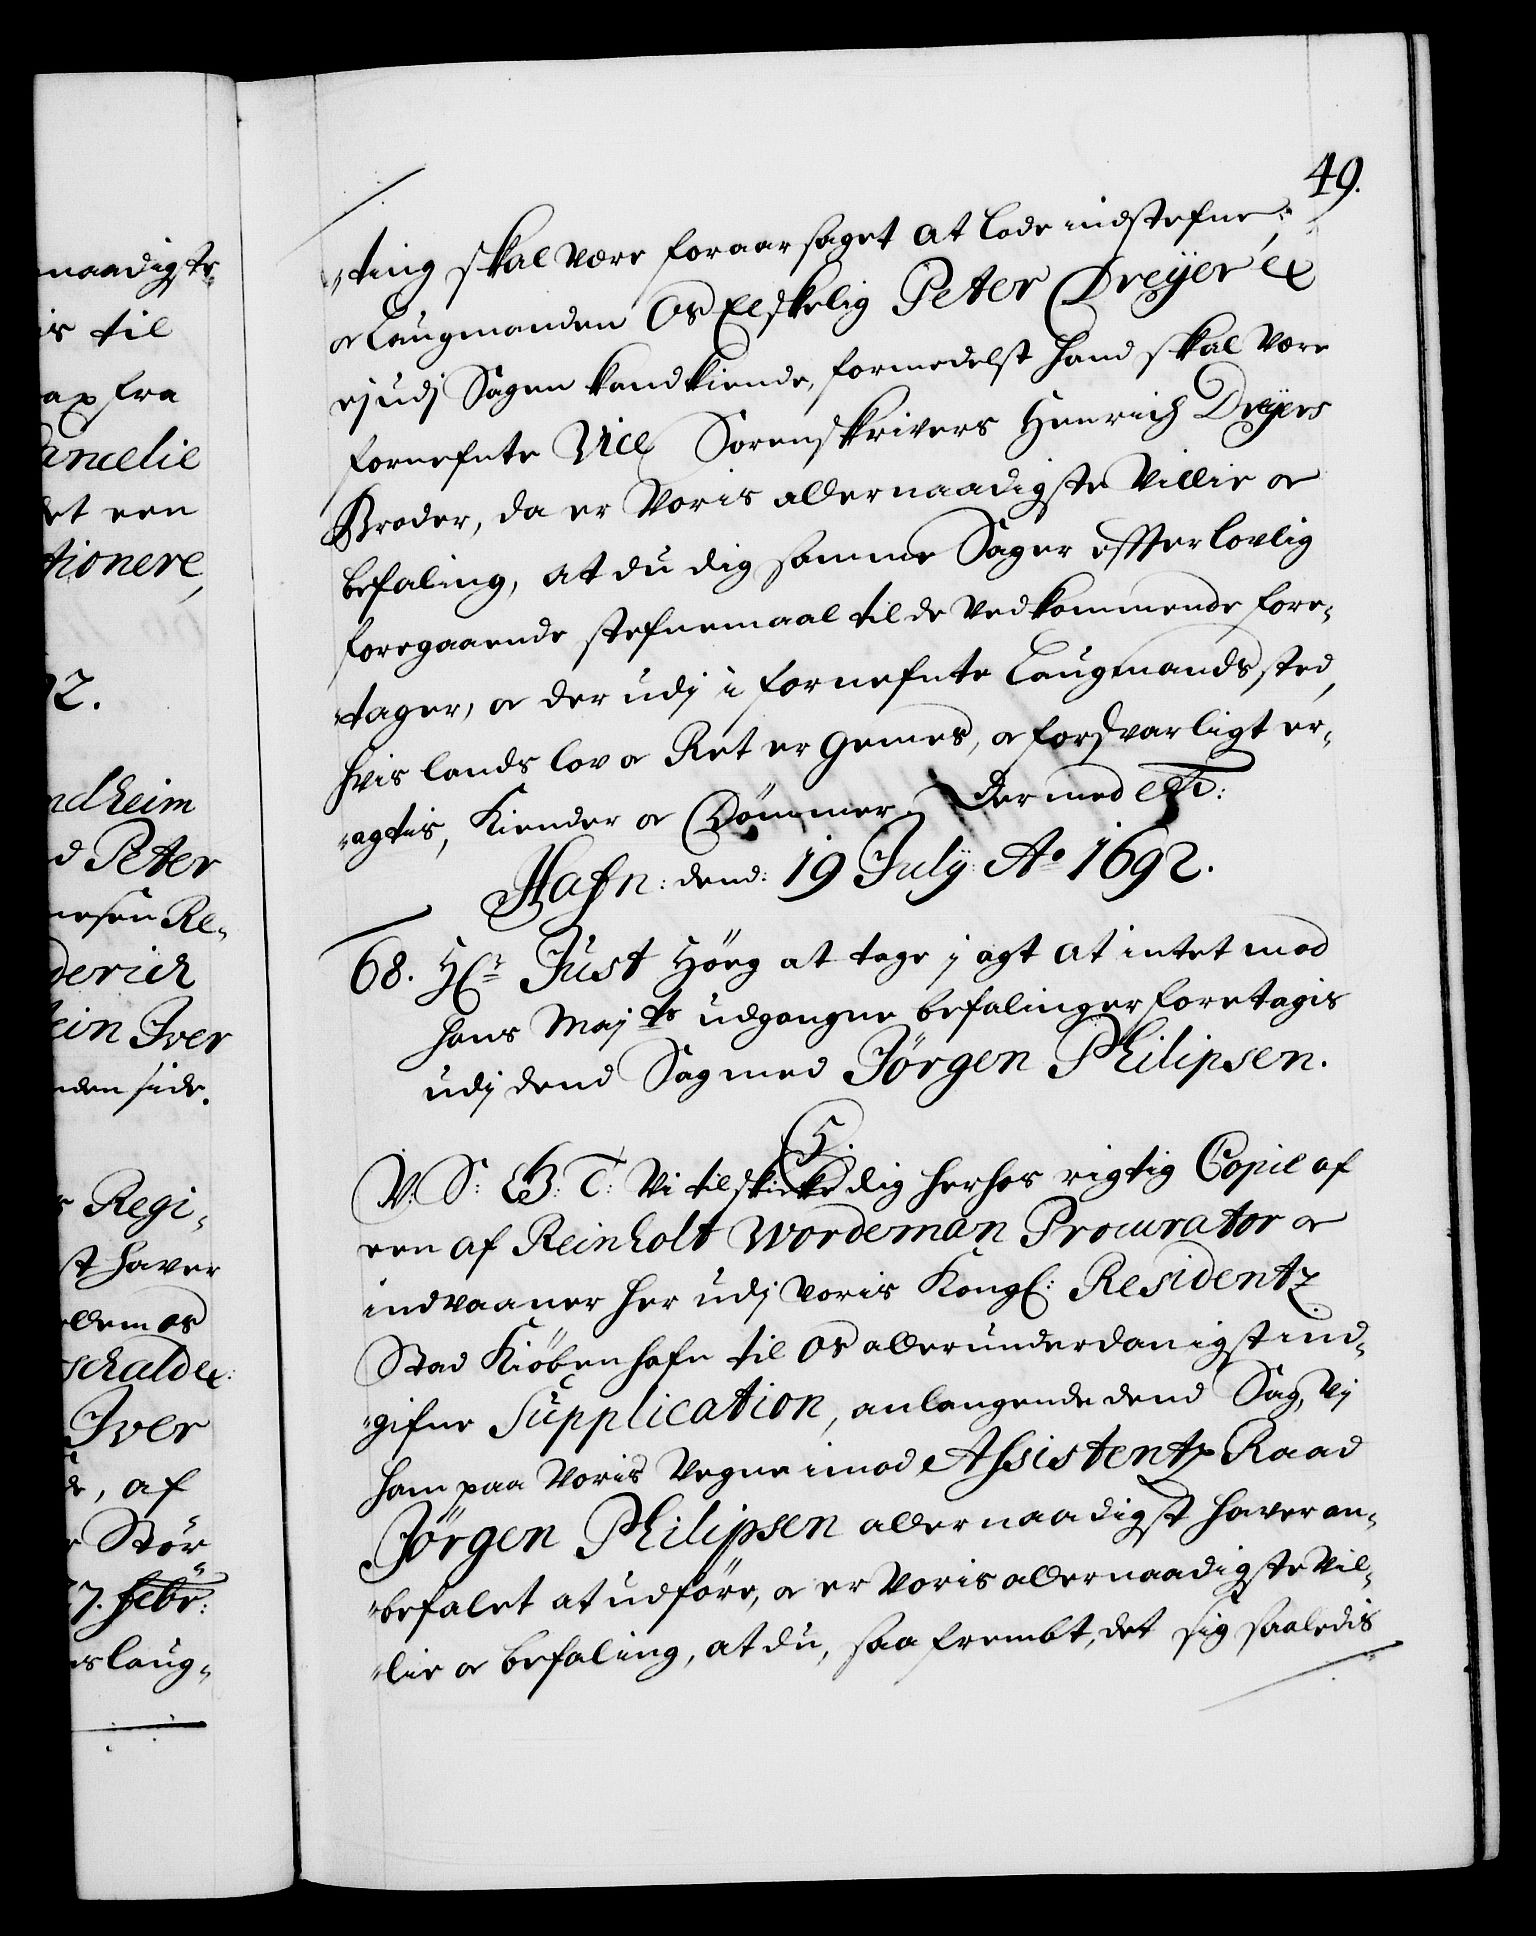 maadigste
is til
ax fra
ancelie
et een
tionere,
92.
ndheim
d Peter
nesen Re-
derich
ein Iver
nden side.
Regi-
st hafver
ellem os
schalder:
Iver
af
Stör
7. Febr:
is laug-
49.
-ting skal være foraarsaget at lade indstefne,
oc Laugmanden Os Elskelig Peter Dreyer ex
ej udj Sagen kand kiende, formedelst hand skal være
fornefnte Vice Sorenskrivers Henrich Dreyers
Broder, da er Voris allernaadigste Villie oc
befaling, at du dig samme Sager effter lovlig
foregaaende stefnemaal til de Vedkommende fore-
-tager, oc der udj i fornefnte Laugmands sted,
hvis lands lov oc Ret er gemes, oc forsvarligt er-
-agtis, Kiender oc Dömmer, Der med etc:
Hafn: dend: 19 July Ao 1692.
68. Hr: Just Höeg at tage j agt at intet mod
hans Majts udgangne befalinger foretagis
udj dend Sag med Jörgen Philipsen.
C5.
V. S: G. B: T: Vi tilskicke dig herhos rigtig Copie af
een af Reinholt Wordeman Procurator oc
indvaaner her udj Voris Kongl: Residentz
Stad Kiöbenhafn til Os allerunderdanigst ind-
-gifne Supplication, anlangende dend Sag, Vj
ham paa Voris Vegne imod Assistentz Raad
Jörgen Philipsen allernaadigst hafver an-
-befalet at udföre, oc er Voris allernaadigste Vil-
-lie oc befaling, at du, saa frembt, det sig saaledis